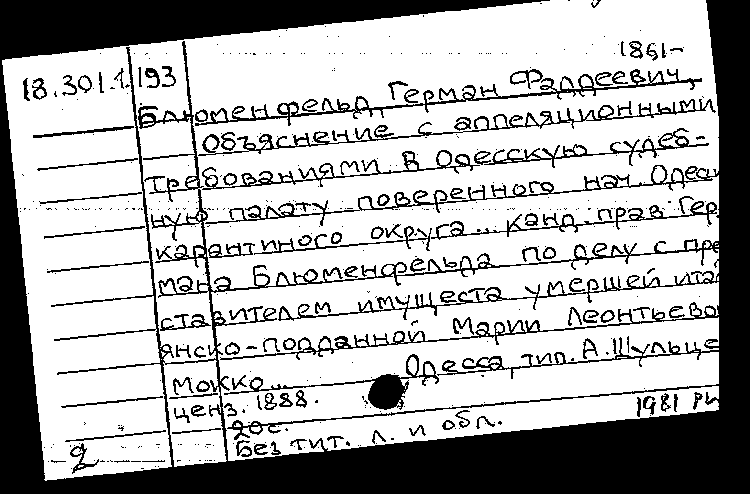 1861-
18.301.1.193
Блюменфельд, Герман Фаддеевич,
Объяснение с аппеляционными
требованиями в Одесскую судеб-
ную палату поверенного нач. Одес
карантиного округа... канд. прав Гер
мана Блюменфельда по делу с пре
ставителем имущеста умершей ита
янско-подданной Марии Леонтьево
Мокко... Одесса, тип. А. Шульце
ценз. 1888.
20с.
Без тит. л. и обл.
1981
2